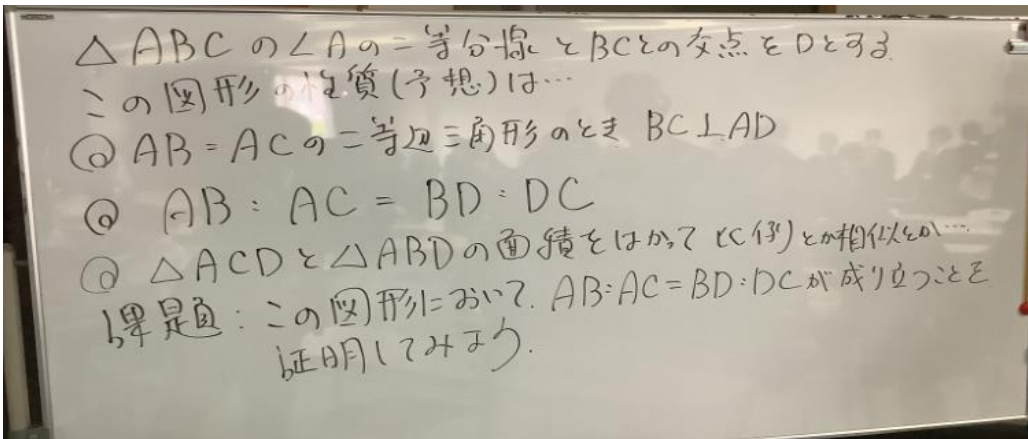 △ABCの∠Aの二等分線とBCとの交点をDとする
この図形の性質(予想)は…
◎AB=ACの二等辺三角形のとき BC⊥AD
◎ AB:AC=BD:DC
◎ △ACDと△ABDの面積をはかって とか相似とか…
課題:この図形において.AB:AC=BD:DCが成り立つことを
証明してみよう.